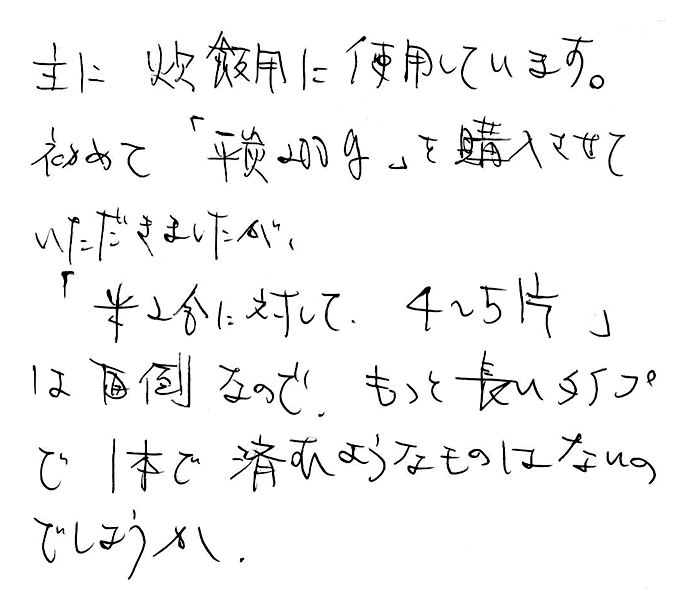 主に炊飯用に使用しています。
初めて「平炭200g」を購入させて
いただきましたが、
「米2合に対して、4~5片」
は面倒なので、もっと長いタイプ
で1本で済むようなものはないの
でしょうか。